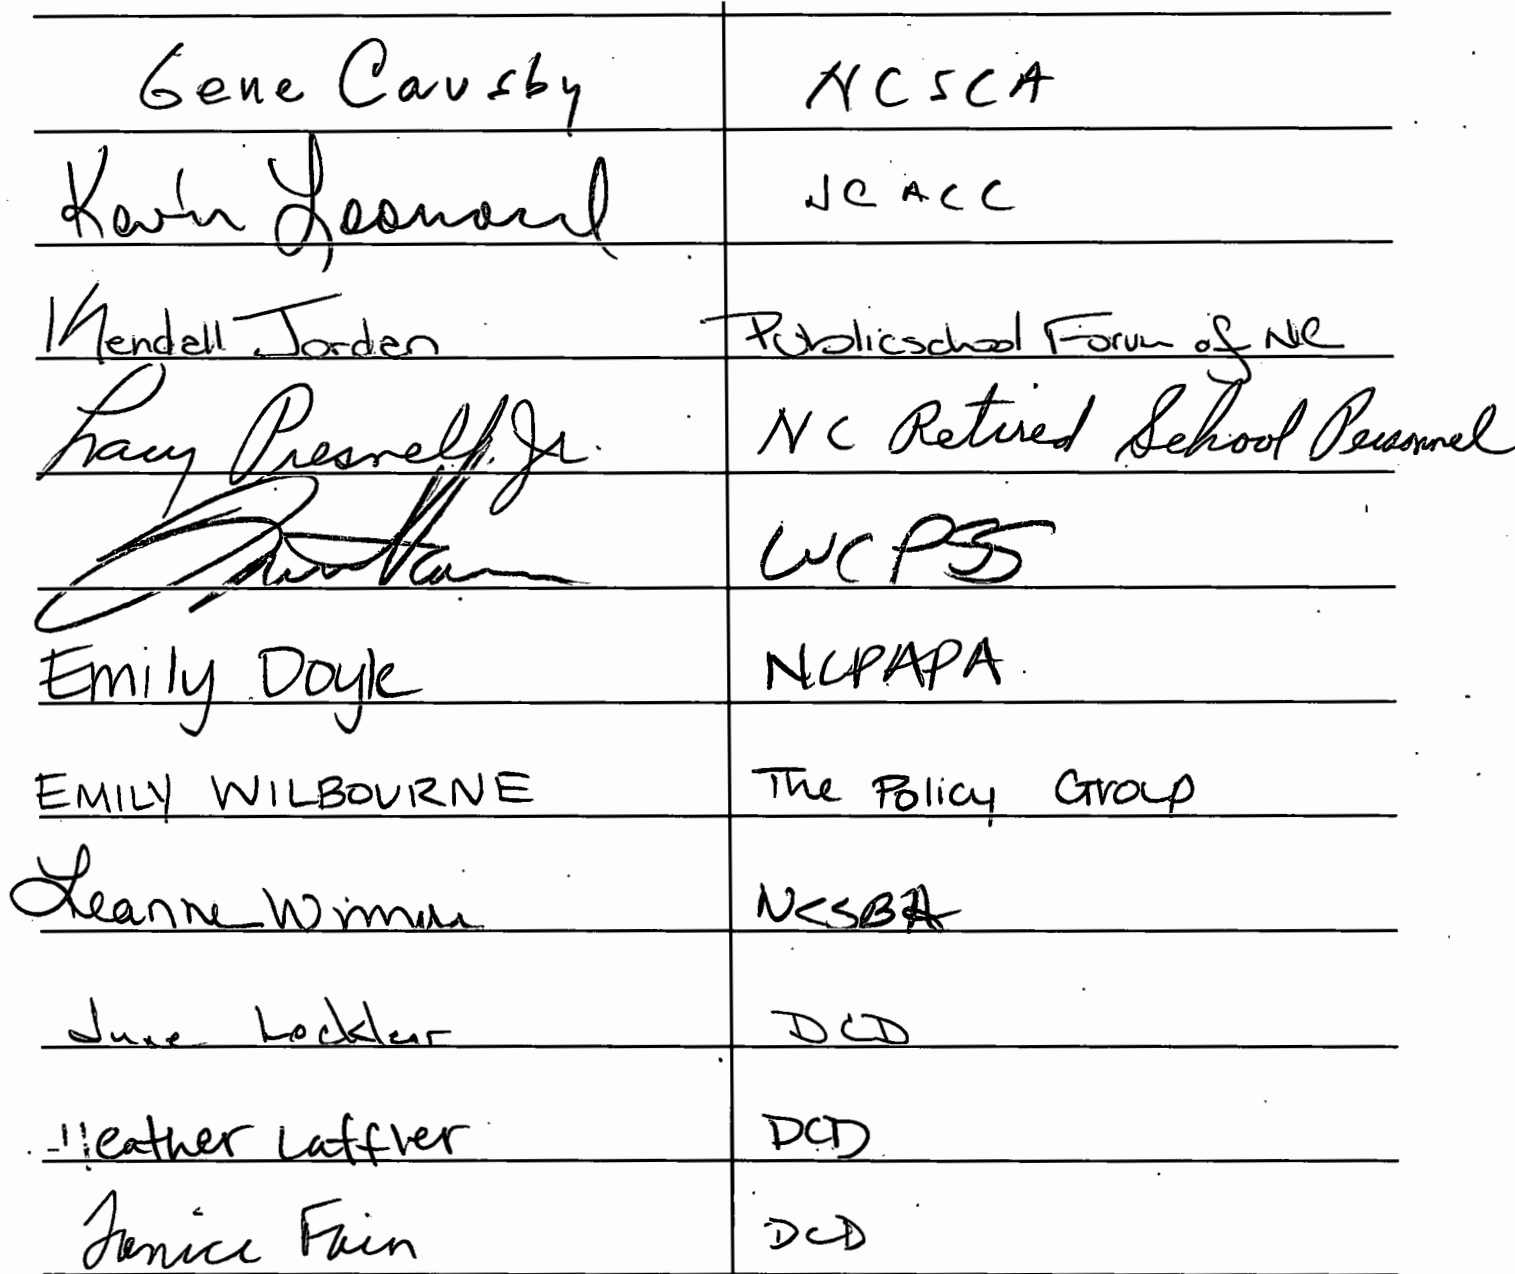 Gene Causby NCSCA
Kevin Leonard NCACC
Kendell Jorden Publicschool Forum of NC
Lacy Presnell, Jr. NC Retired School Personnel
WCPSS
Emily Doyle NCPAPA
EMILY WILBOURNE The Policy Group
Leanne Winner NCSBA
June Locklear DCD
Heather Laffler DCD
Janice Fain DCD